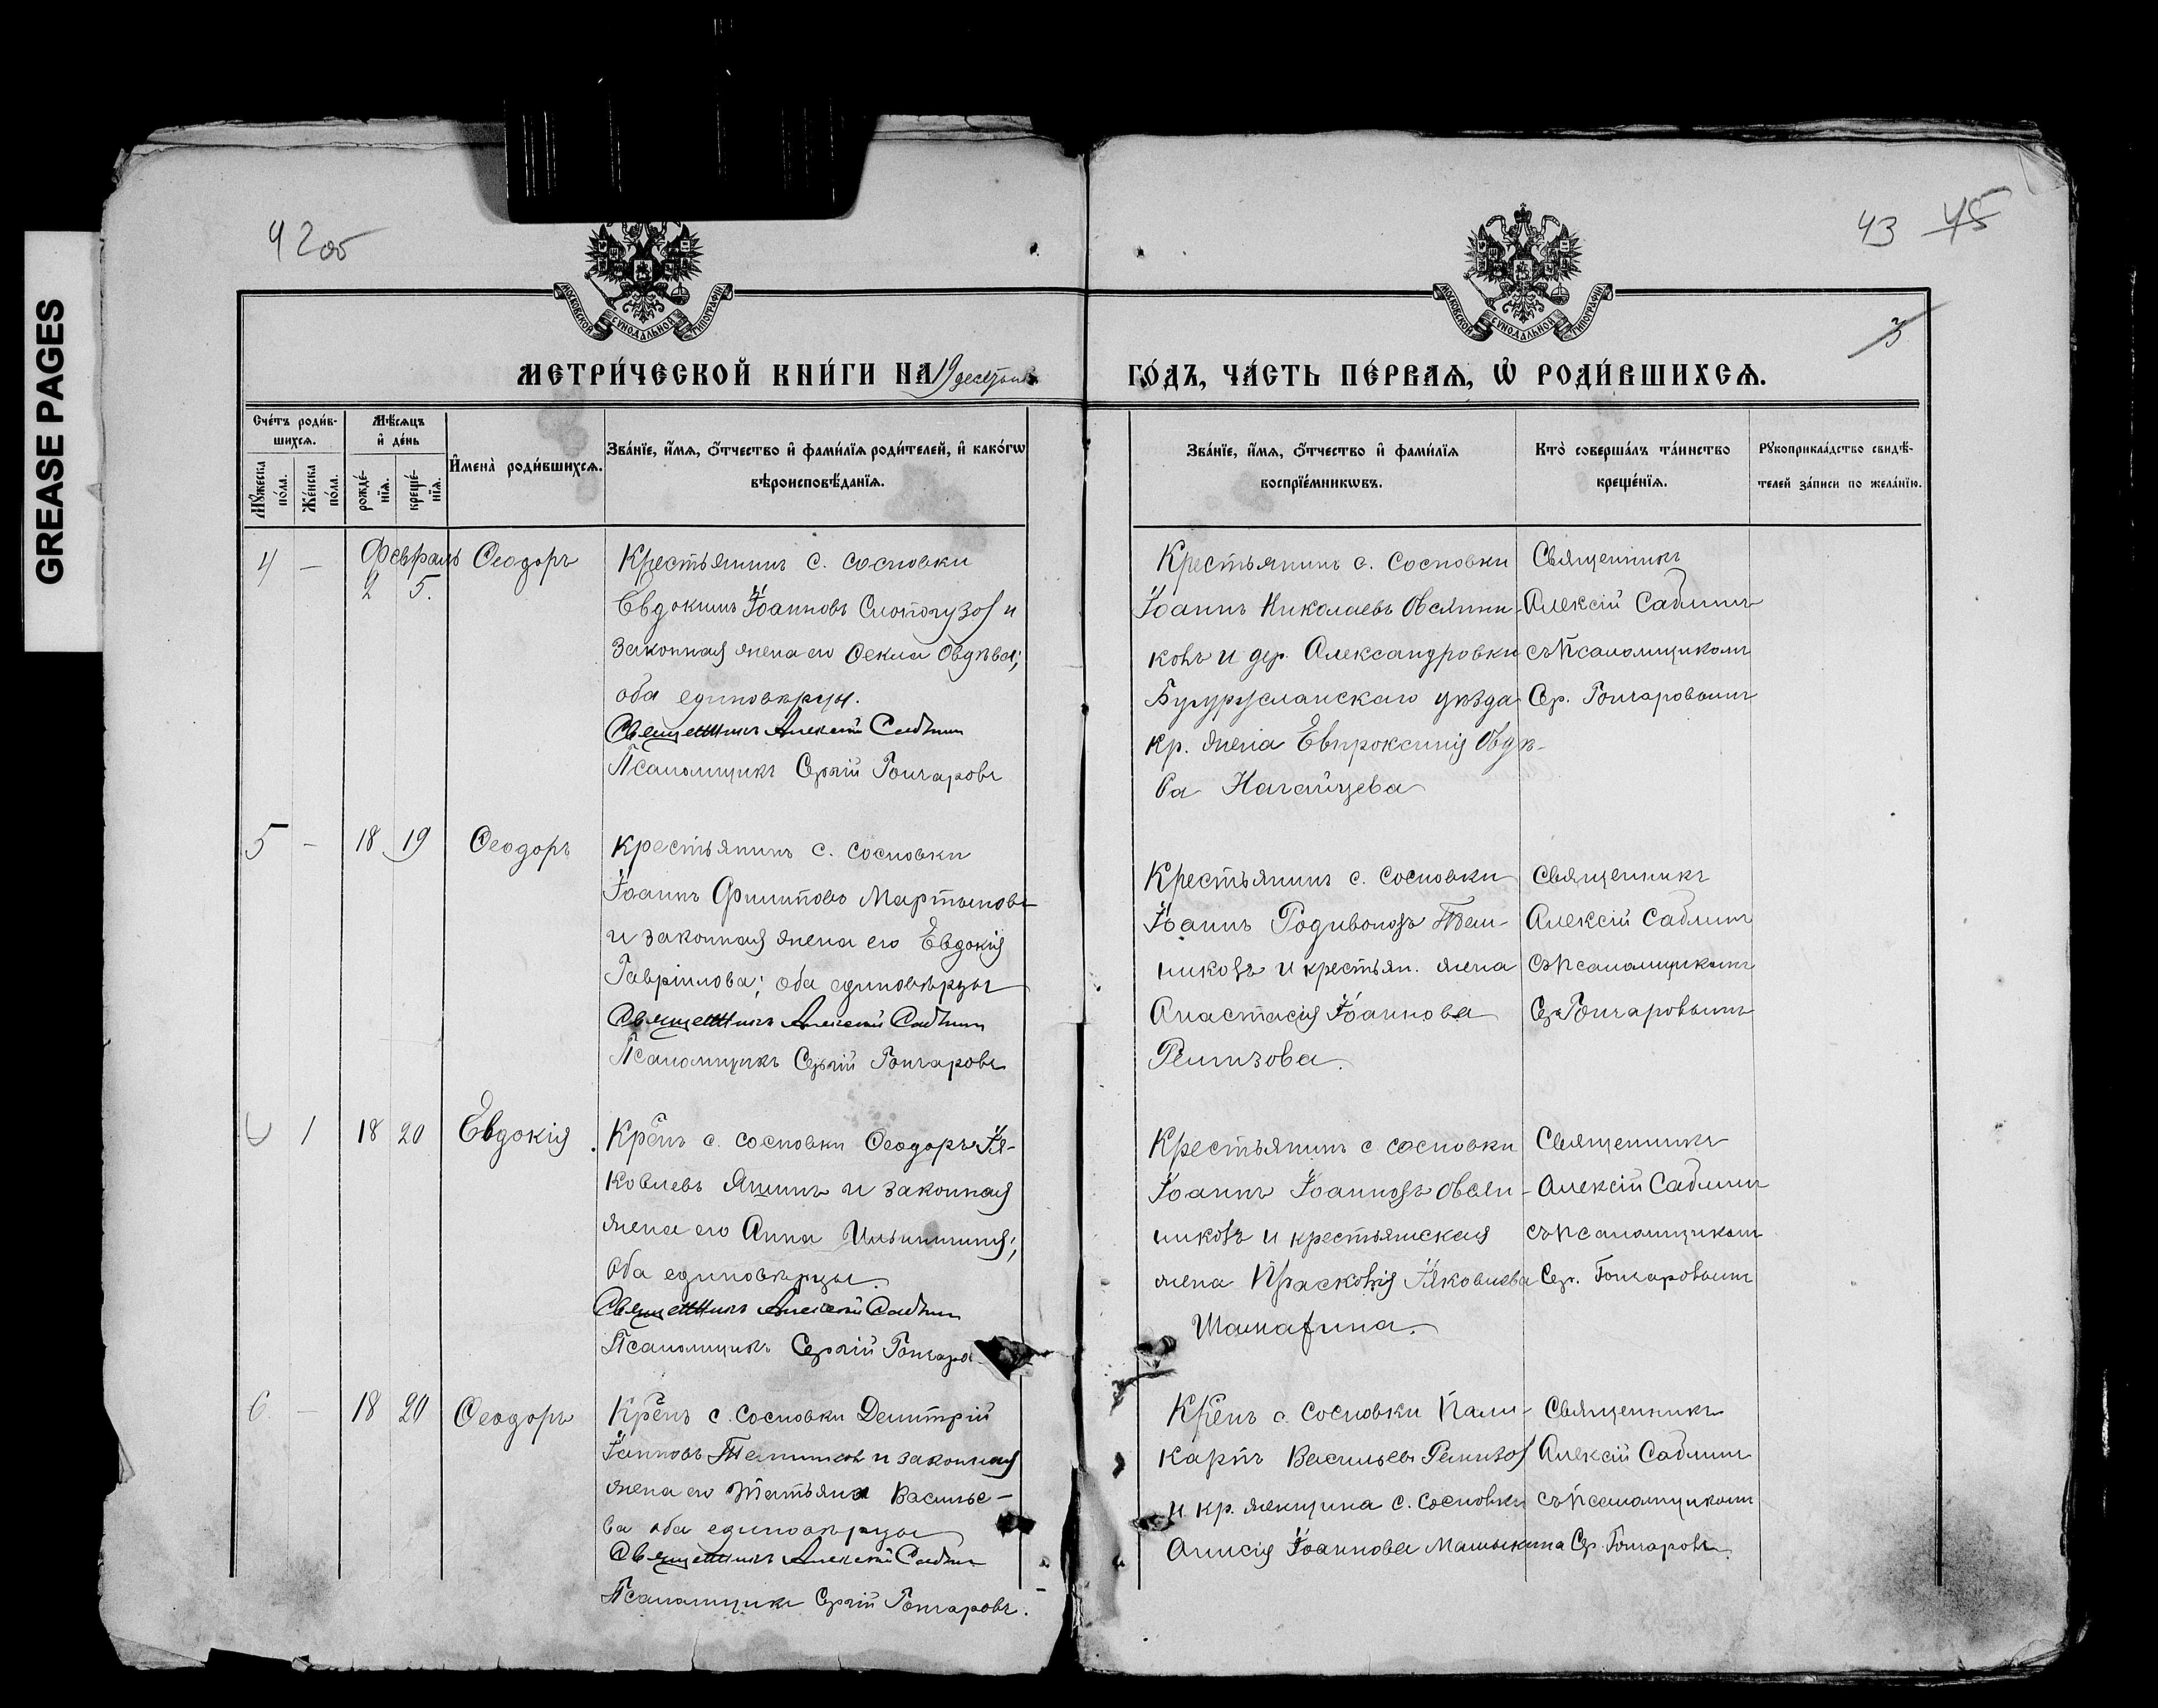 GREASE PAGES
42об
43 45
3
МОСКОВСКОЙ СѴНОДАЛЬНОЙ ТИПОГРАФІИ
МОСКОВСКОЙ СѴНОДАЛЬНОЙ ТИПОГРАФІИ
МЕТРИ́ЧЕСКОЙ КНИ́ГИ НА 19
ГО́ДЪ, ЧА́СТЬ ПЕ́РВАѦ, Ѡ҆ РОДИ́ВШИХСѦ.
Сче́тъ роди́в-
шихсѧ.
Мꙋ́жеска
по́ла.
Же́нска
по́ла.
Мѣ́сѧцъ
и҆ де́нь
рожде́-
нїѧ.
креще́-
нїѧ.
И҆мена̀ роди́вшихсѧ.
Зва́нїе, и҆́мѧ, ѻ҆́тчество и҆ фами́лїѧ роди́телей, и҆ како́гѡ
вѣроисповѣ́данїѧ.
Зва́нїе, и҆́мѧ, ѻ҆́тчество и҆ фами́лїѧ
воспрїе́мникѡвъ.
Кто̀ соверша́лъ та́инство
креще́нїѧ.
Рꙋкоприкла́дство свидѣ́-
телей за́писи по жела́нїю.
4 — Февраль Ѳеодоръ
2 5.
Крестьянинъ с. Сосновки
Евдокимъ Іоанновъ и
законная жена его Ѳекла Авдѣева;
оба единовѣрцы.
Священникъ Алексій Саблин
Псаломщикъ Сергій Гончаровъ
Крестьянинъ с. Сосновки
Іоаннъ Николаевъ Овсянни-
ковъ и дер. Александровки
Бугурусланскаго уѣзда
кр. жена Евпроксинія Авдѣе-
ва Нагайцева
Священникъ
Алексій Саблинъ
съ псаломщикомъ
Сер. Гончаровымъ
5 — 18 19 Ѳеодоръ
Крестьянинъ с. Сосновки
Іоаннъ Филиповъ Мартыновъ
и законная жена его Евдокія
Гавріилова; оба единовѣрцы
Священникъ Алексій Саблин
Псаломщикъ Сергій Гончаровъ
Крестьянинъ с. Сосновки
Іоаннъ Родивоновъ Тем-
никовъ и крестьян. жена
Анастасія Іоаннова
Ремизова.
Священникъ
Алексій Саблинъ
съ псаломщикомъ
Сер. Гончаровымъ
1 18 20 Евдокія
Кр̃нъ с. Сосновки Ѳеодоръ Іа-
ковлевъ Яшинъ и законная
жена его Анна Ильинична;
оба единовѣрцы.
Священникъ Алексій Саблин
Псаломщикъ Сергій Гончаро
Крестьянинъ с. Сосновки
Іоаннъ Іоанновъ Овсян-
никовъ и крестьянская
жена Прасковія Іаковлева
Священникъ
Алексій Саблинъ
съ псаломщикомъ
Сер. Гончаровымъ
6 — 18 20 Ѳеодоръ
Кр̃нъ с. Сосновки Димитрій
Іаннов Темников и законная
жена его Татьяна Василье-
ва оба единовѣрцы
Священникъ Алексій Саблин
Псаломщикъ Сергій Гончаровъ.
Кр̃нъ с. Сосновки Поли-
карпъ Васильевъ Ремизов
и кр. женщина с. Сосновки
Анисія Іоаннова Машыкина
Священникъ
Алексій Саблинъ
съ псаломщикомъ
Ср. Гончаровъ.